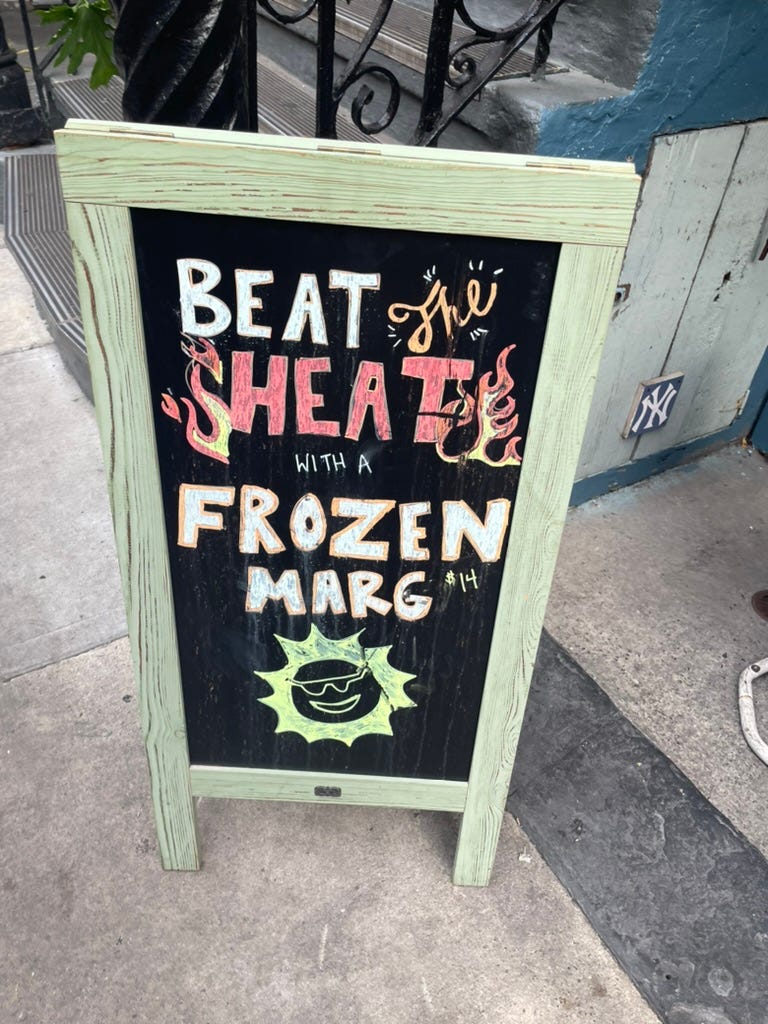 BEAT The
HEAT
WITH A
FROZEN
MARG $14
NY